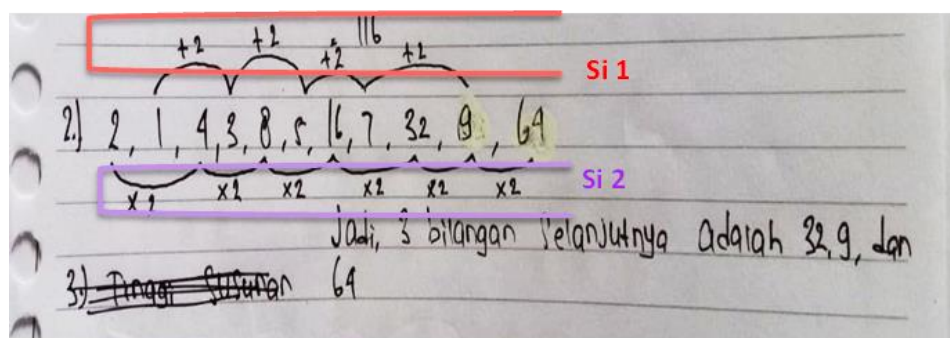 +2 +2 +2 116 +2
Si 1
2.) 2, 1, 4, 3, 8, 5, 16, 7, 32, 9, 64
x2 x2 x2 x2 x2 x2
Si 2
Jadi, 3 bilangan selanjutnya adalah 32, 9, dan
3.) Tinggi susunan 64